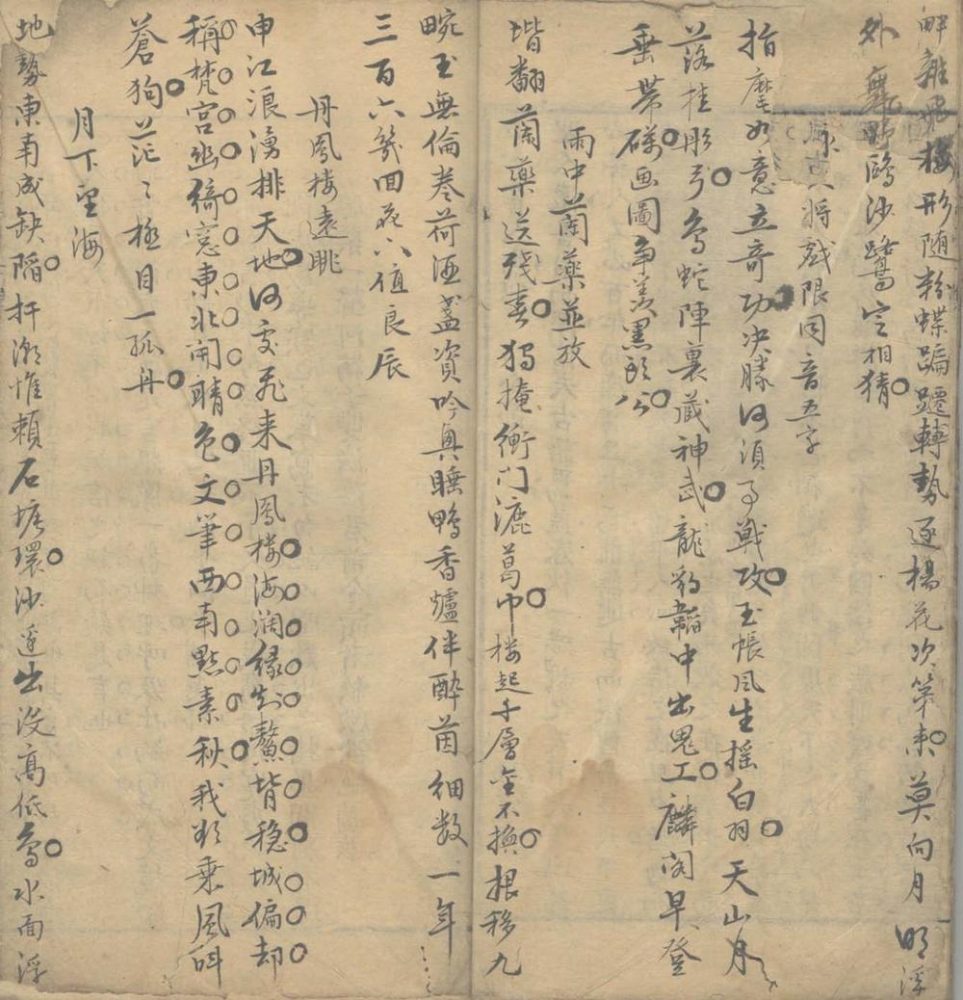 難飛樓形随粉蝶蹁躚轉勢逐楊花次第來莫向月明浮
外野鷗沙鷺定相猜
將戲限同音五字
指麾如意立奇功决勝何須事戦攻玉帳風生摇白羽天山月
落挂彤弓鳥蛇陣裏藏神武龍豹韜中出鬼工麟阁早登
垂常磔画圖争羡黑頭公
雨中蘭藥並放
堦翻蘭藥送残春獨掩衡门漉葛巾楼起千層金不換根移九
畹玉無倫卷荷酒盞資吟興睡鴨香爐伴醉茵細数一年
三百六幾回花六值良辰
丹鳳楼遠眺
申江浪湧排天地何處飛来丹鳳楼海濶緑剖鰲背稳城偏却
稱梵宫幽綺窓東北開晴色文筆西南點素秋我欲乗風呌
蒼狗茫〻極目一孤舟
月下望海
地勢東南成缺陷扞潮惟頼石塘環沙逐出没高低鳥水面浮